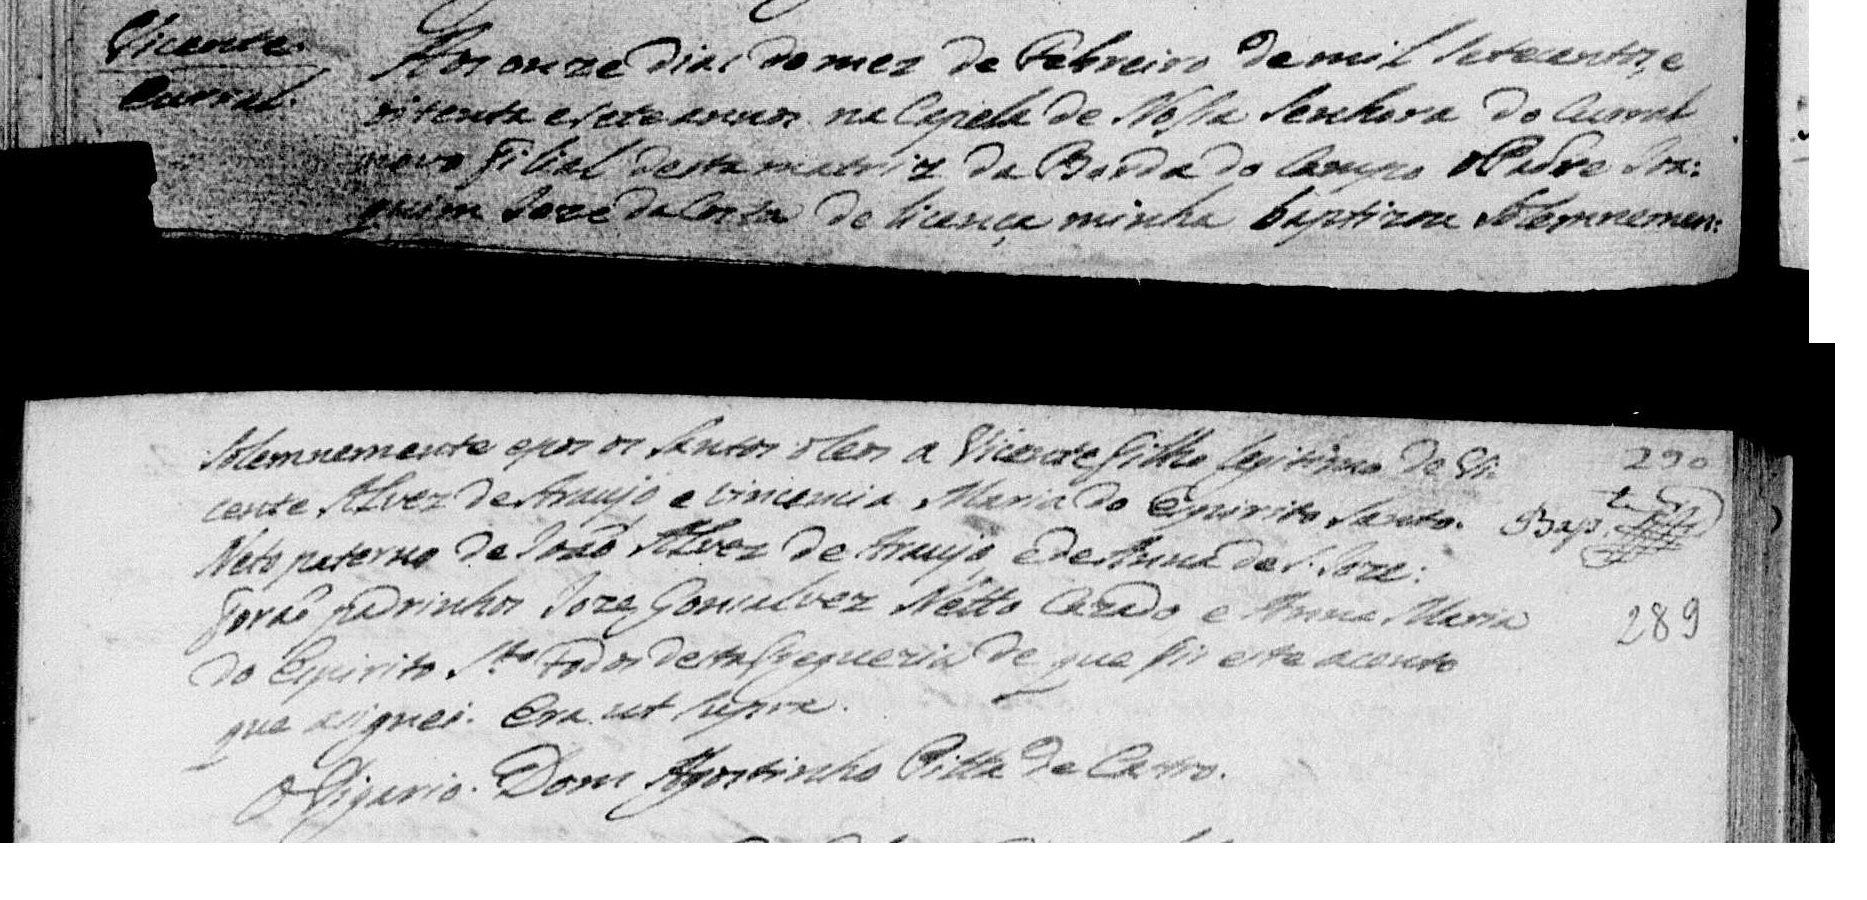 Vicente.
Curral.
Aos onze dias do mez de Febreiro de mil setecentos, e
oitenta e sete annos na Capela de Nossa Senhora do Curral
novo filial desta matriz da Borda do Campo o Padre Joa:
quim Joze da Costa de licença minha baptizou Solemnemen:
Solemnemente e pos os Santos oleos a Vicente filho legitimo de Vi
cente Alvez de Araujo, e Vincencia Maria do Espirito Santo.
Neto paterno de João Alvez de Araujo, e de Anna de S. Joze:
forão padrinhos Joze Gonsalvez Netto Cazado, e Anna Maria
do Espirito Sto Todos desta freguezia de que fis este acento
que asignei. Era ut supra.
O Vigario. Dom Agostinho Pitta de Castro.
290
Bap.
289